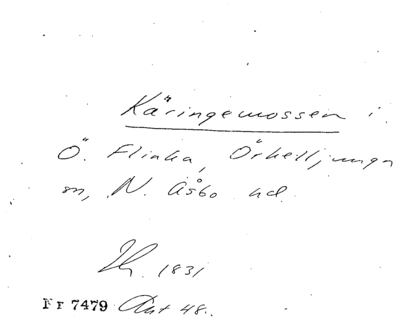 Käringemossen i
Ö. Flinka, Örkelljunga
sn, N. Åsbo hd.
1831
Nr 7479 Ant 48.